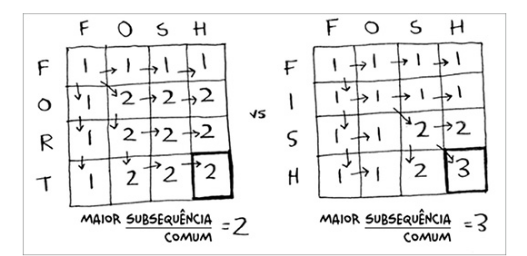 F O S H
F 1 → 1 → 1 → 1
O 1 2 → 2 → 2
R 1 2 → 2 → 2
T 1 2 → 2 → 2
MAIOR SUBSEQUÊNCIA COMUM = 2
vs
F O S H
F 1 → 1 → 1 → 1
I 1 → 1 → 1 → 1
S 1 → 1 2 → 2
H 1 → 1 2 3
MAIOR SUBSEQUÊNCIA COMUM = 3